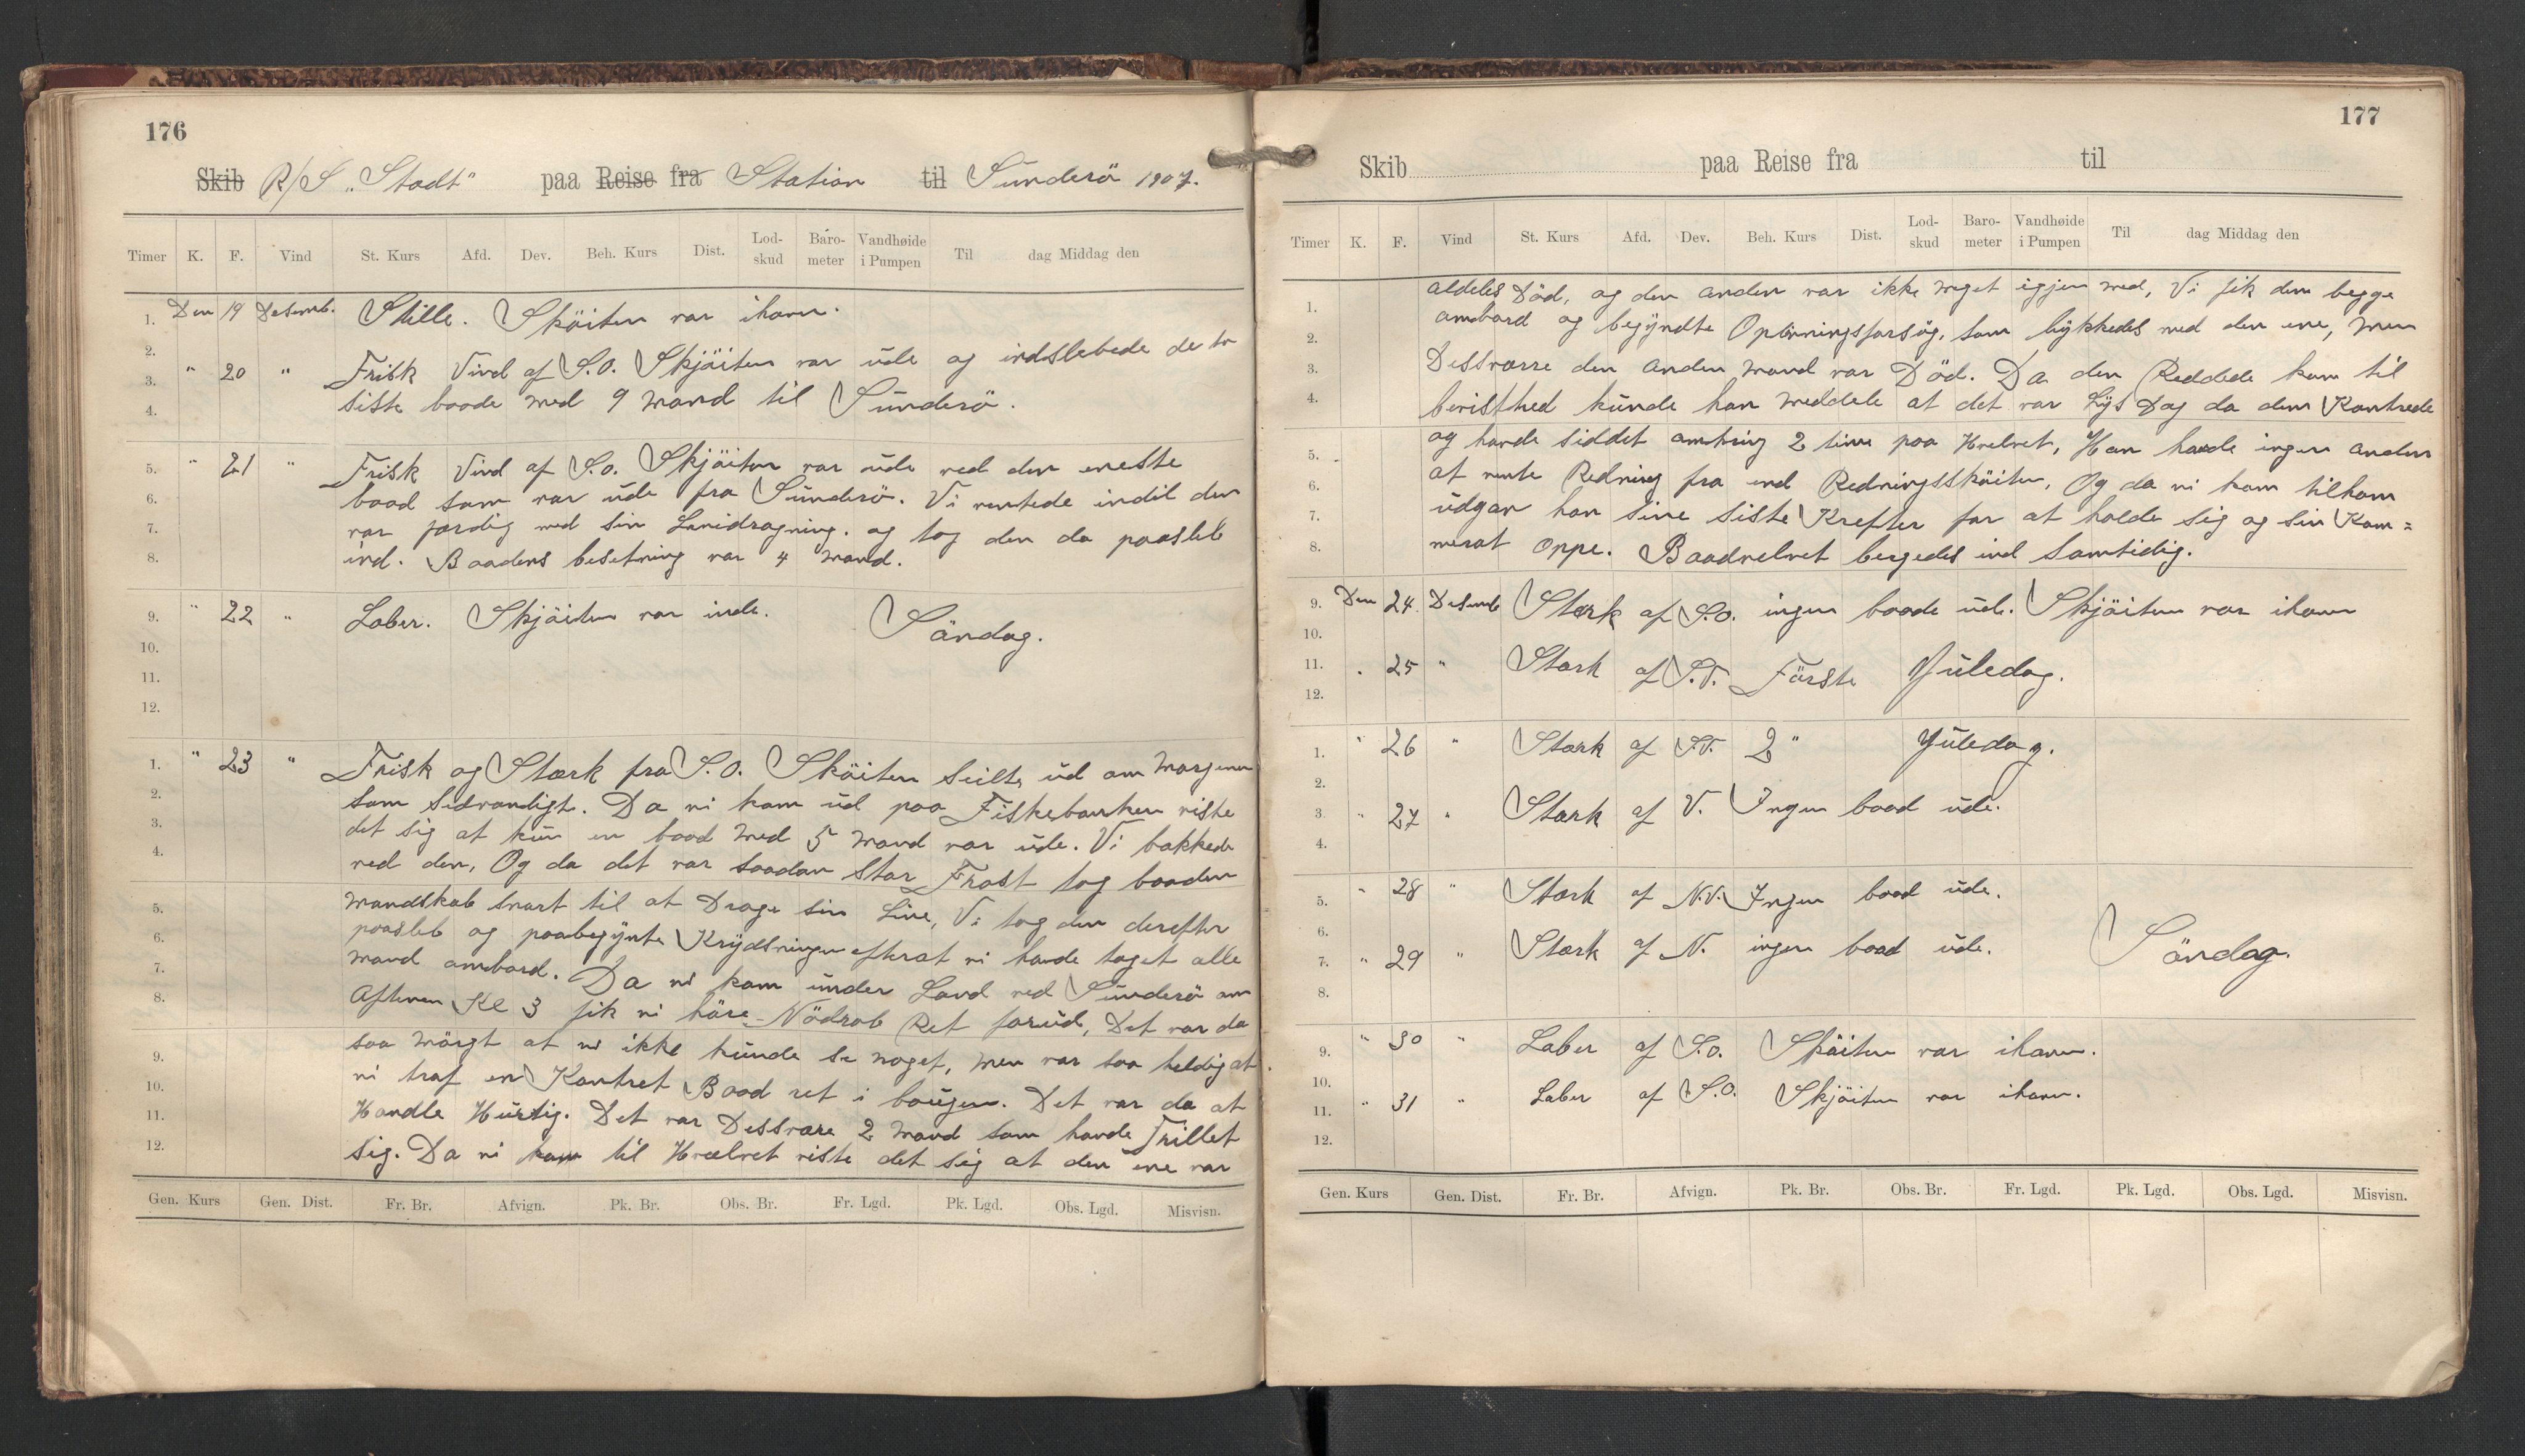 176
Skib R/S „Stadt“ paa Reise fra Station til Sunderö 1907.
Timer K. F. Vind St. Kurs Afd. Dev. Beh. Kurs Dist. Lod-skud Baro-meter Vandhøide i Pumpen Til dag Middag den
1. Den 19 Desemb. Stille. Sköiten var ihavn.
2.
3. " 20 " Frisk Vind af S.O. Skjöiten var ude og indslebede de to
4. siste baade med 9 mand til Sunderö.
5. " 21 " Frisk Vind af S.o. Skjöiten var ude ved den eneste
6. baad som var ude fra Sunderö. Vi ventede indil den
7. var færdig med sin Linidragning. og tog den da paasleb
8. ind. Baadens besetning var 4 mand.
9. " 22 " Laber. Skjöiten var inde. Söndag.
10.
11.
12.
1. " 23 " Frisk og Stærk fra S.O. Sköiten seilte ud om morgenen
2. som sedvandligt. Da vi kom ud paa Fiskebanken viste
3. det sig at kun en baad med 5 mand var ude. Vi bakkede
4. ved den, Og da det var saadan stor Frost tog baadens
5. mandskab snart til at Drage sin Line, Vi tog den derefter
6. paasleb og paabegynte Krydsningen efterat vi havde taget alle
7. mand ombord. Da vi kom under Land ved Sunderö om
8. Aftenen Kl 3 fik vi höre Nödrob Ret forud, Det var da
9. saa mörgt at vi ikke kunde se noget, men var saa heldig at
10. vi traf en Kantret Baad ret i bougen. Det var da at
11. Handle Hurtig. Det var Dessvære 2 mand som havde Frillet
12. sig. Da vi kom til Hvælvet viste det sig at den ene var
Gen. Kurs Gen. Dist. Fr. Br. Afvign. Pk. Br. Obs. Br. Fr. Lgd. Pk. Lgd. Obs. Lgd. Misvisn.
177
Skib paa Reise fra til
Timer K. F. Vind St. Kurs Afd. Dev. Beh. Kurs Dist. Lod-skud Baro-meter Vandhøide i Pumpen Til dag Middag den
1. aldeles Död, og den anden var ikke meget igjen med, Vi fik dem begge
2. ombord og begyndte Oplivningsforsög, som lykkedes med den ene, men
3. Dessværre den anden mand var Död. Da den Reddede kom til
4. bevisthed kunde han meddele at det var Lys Dag da dem Kantrede
5. og havde siddet omtring 2 time paa Hvelvet, Han havde ingen anden
6. at vente Redning fra end Redningssköiten, Og da vi kom tilham
7. udgav han sine siste Krefter for at holde sig og sin Kam=
8. merat oppe. Baadvelvet bergedes ind samtidig.
9. Den 24. Desemb Sterk af S.o. ingen baade ude. Skjöiten var ihavn
10.
11. " 25 " Stærk af S.V. Förste Juledag.
12.
1. " 26 " Stærk af S.V. 2" Juledag.
2.
3. " 27 " Stærk af V. Ingen baad ude.
4.
5. " 28 " Stærk af N.V. Ingen baad ude.
6.
7. " 29 " Stærk af N. ingen baad ude. Söndag.
8.
9. " 30 " Laber af S.o. Sköiten var ihavn.
10.
11. " 31 " Laber af S.O. Skjöiten var ihavn.
12.
Gen. Kurs Gen. Dist. Fr. Br. Afvign. Pk. Br. Obs. Br. Fr. Lgd. Pk. Lgd. Obs. Lgd. Misvisn.